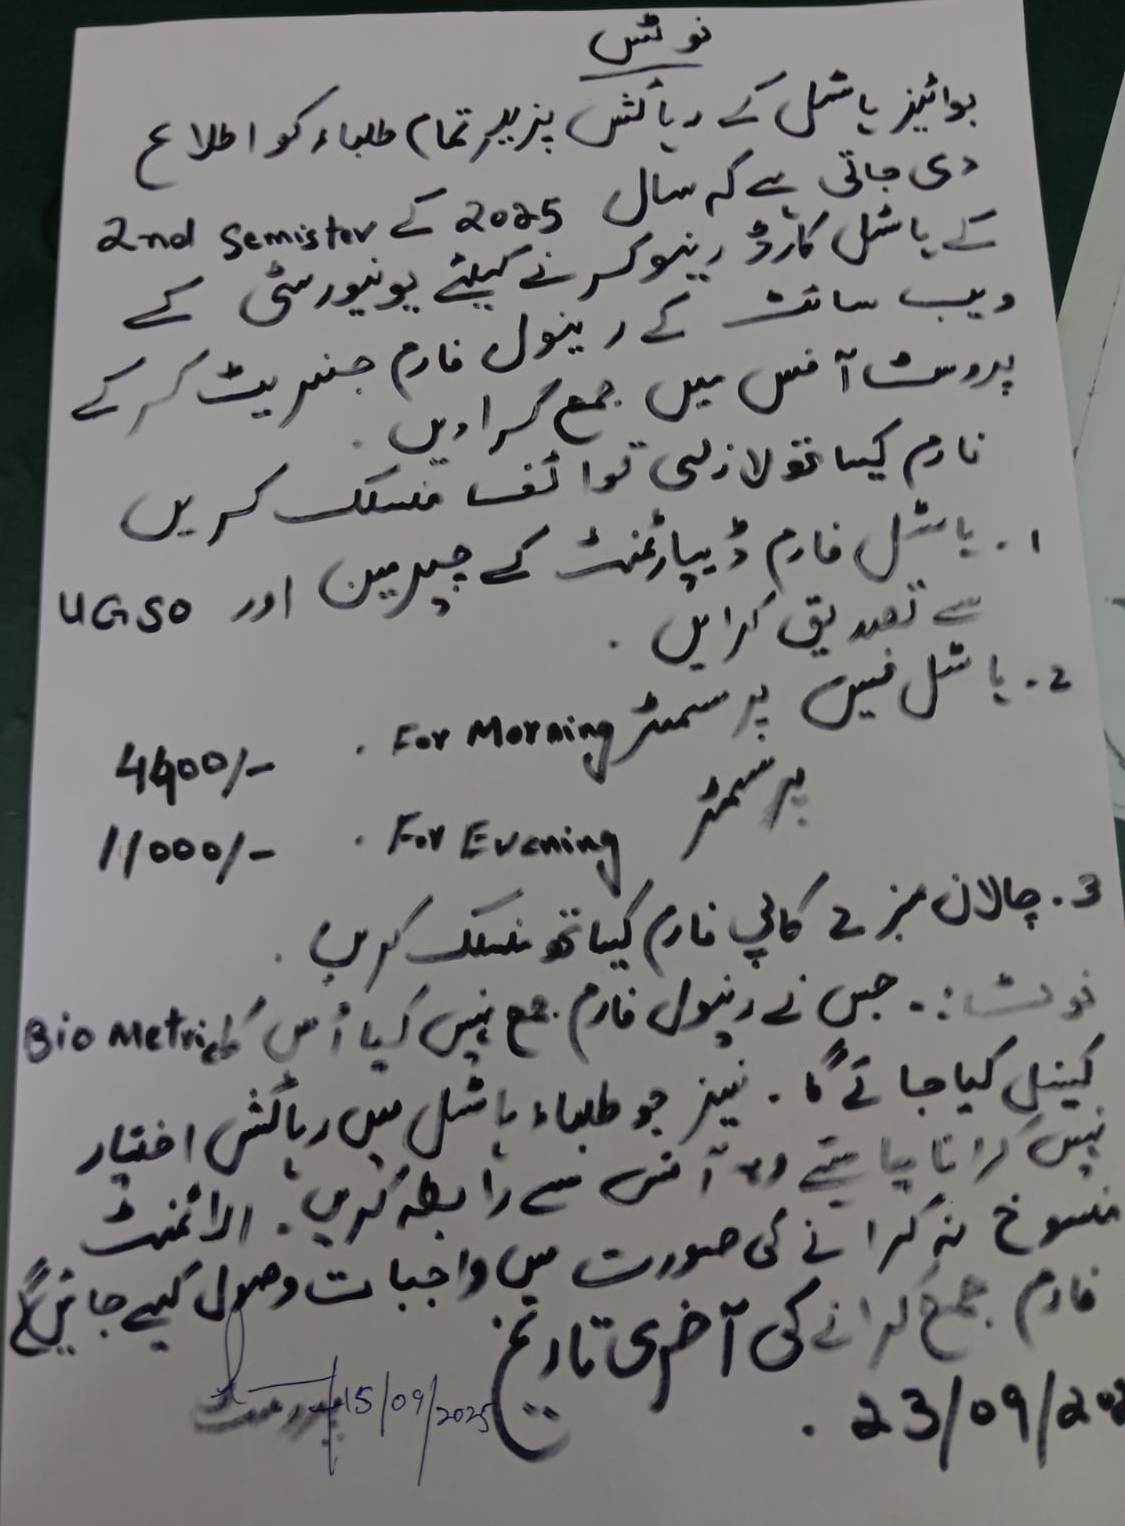 نوٹس
بوائیز ہاسٹل کے رہائش پزیر تمام طلباء کو اطلاع
دی جاتی ہے کہ سال 2025 کے 2nd Semister
کے ہاسٹل کارڈ رینوکرنے کیلئے یونیورسٹی کے
ویب سائٹ کے رینول فارم جنریٹ کرکے
پروسٹ آفس میں جمع کرادیں .
فارم کیساتھ لازمی کوائف منسلک کریں
1. ہاسٹل فارم ڈیپارٹمنٹ کے چیرمین اور UGSO
سے تصدیق کرایں .
2. ہاسٹل فیس پر سمسٹر For Morning . 4400/-
پر سمسٹر For Evening . 11000/-
3. چالان نمبر 2 کاپی فارم کیساتھ منسلک کریں .
نوٹ :. جس نے رینول فارم جمع نہیں کیا اُس کا Bio Metric
کینسل کیا جائے گا . نیز جو طلباء ہاسٹل میں رہائش اختیار
نہیں کرانا چاہتے وہ آفس سے رابطہ کریں . الاٹمنٹ
منسوخ نہ کرانے کی صورت میں واجبات وصول کیے جائیں گے
فارم جمع کرانے کی آخری تاریخ
23/09/202 .
پروسٹ 15/09/2025